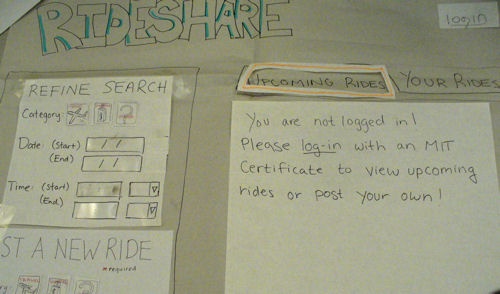 RIDESHARE
login
REFINE SEARCH
Category:
Date: (Start) / /
(End) / /
Time: (Start)
(End)
UPCOMING RIDES
YOUR RIDES
You are not logged in!
Please log-in with an MIT
Certificate to view upcoming
rides or post your own!
ST A NEW RIDE
*required